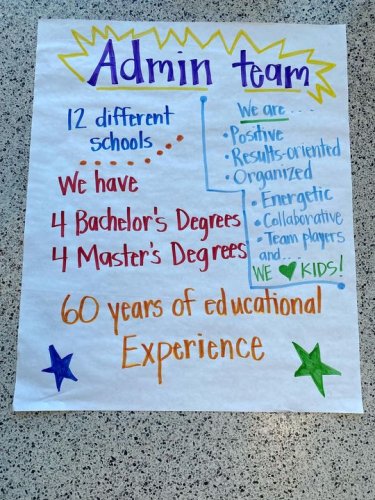 Admin team
12 different
schools
We have
4 Bachelor's Degrees
4 Master's Degrees
We are....
• Positive
• Results-oriented
• Organized
• Energetic
• Collaborative
• Team players
and...
WE ♥ KIDS!
60 years of educational
Experience